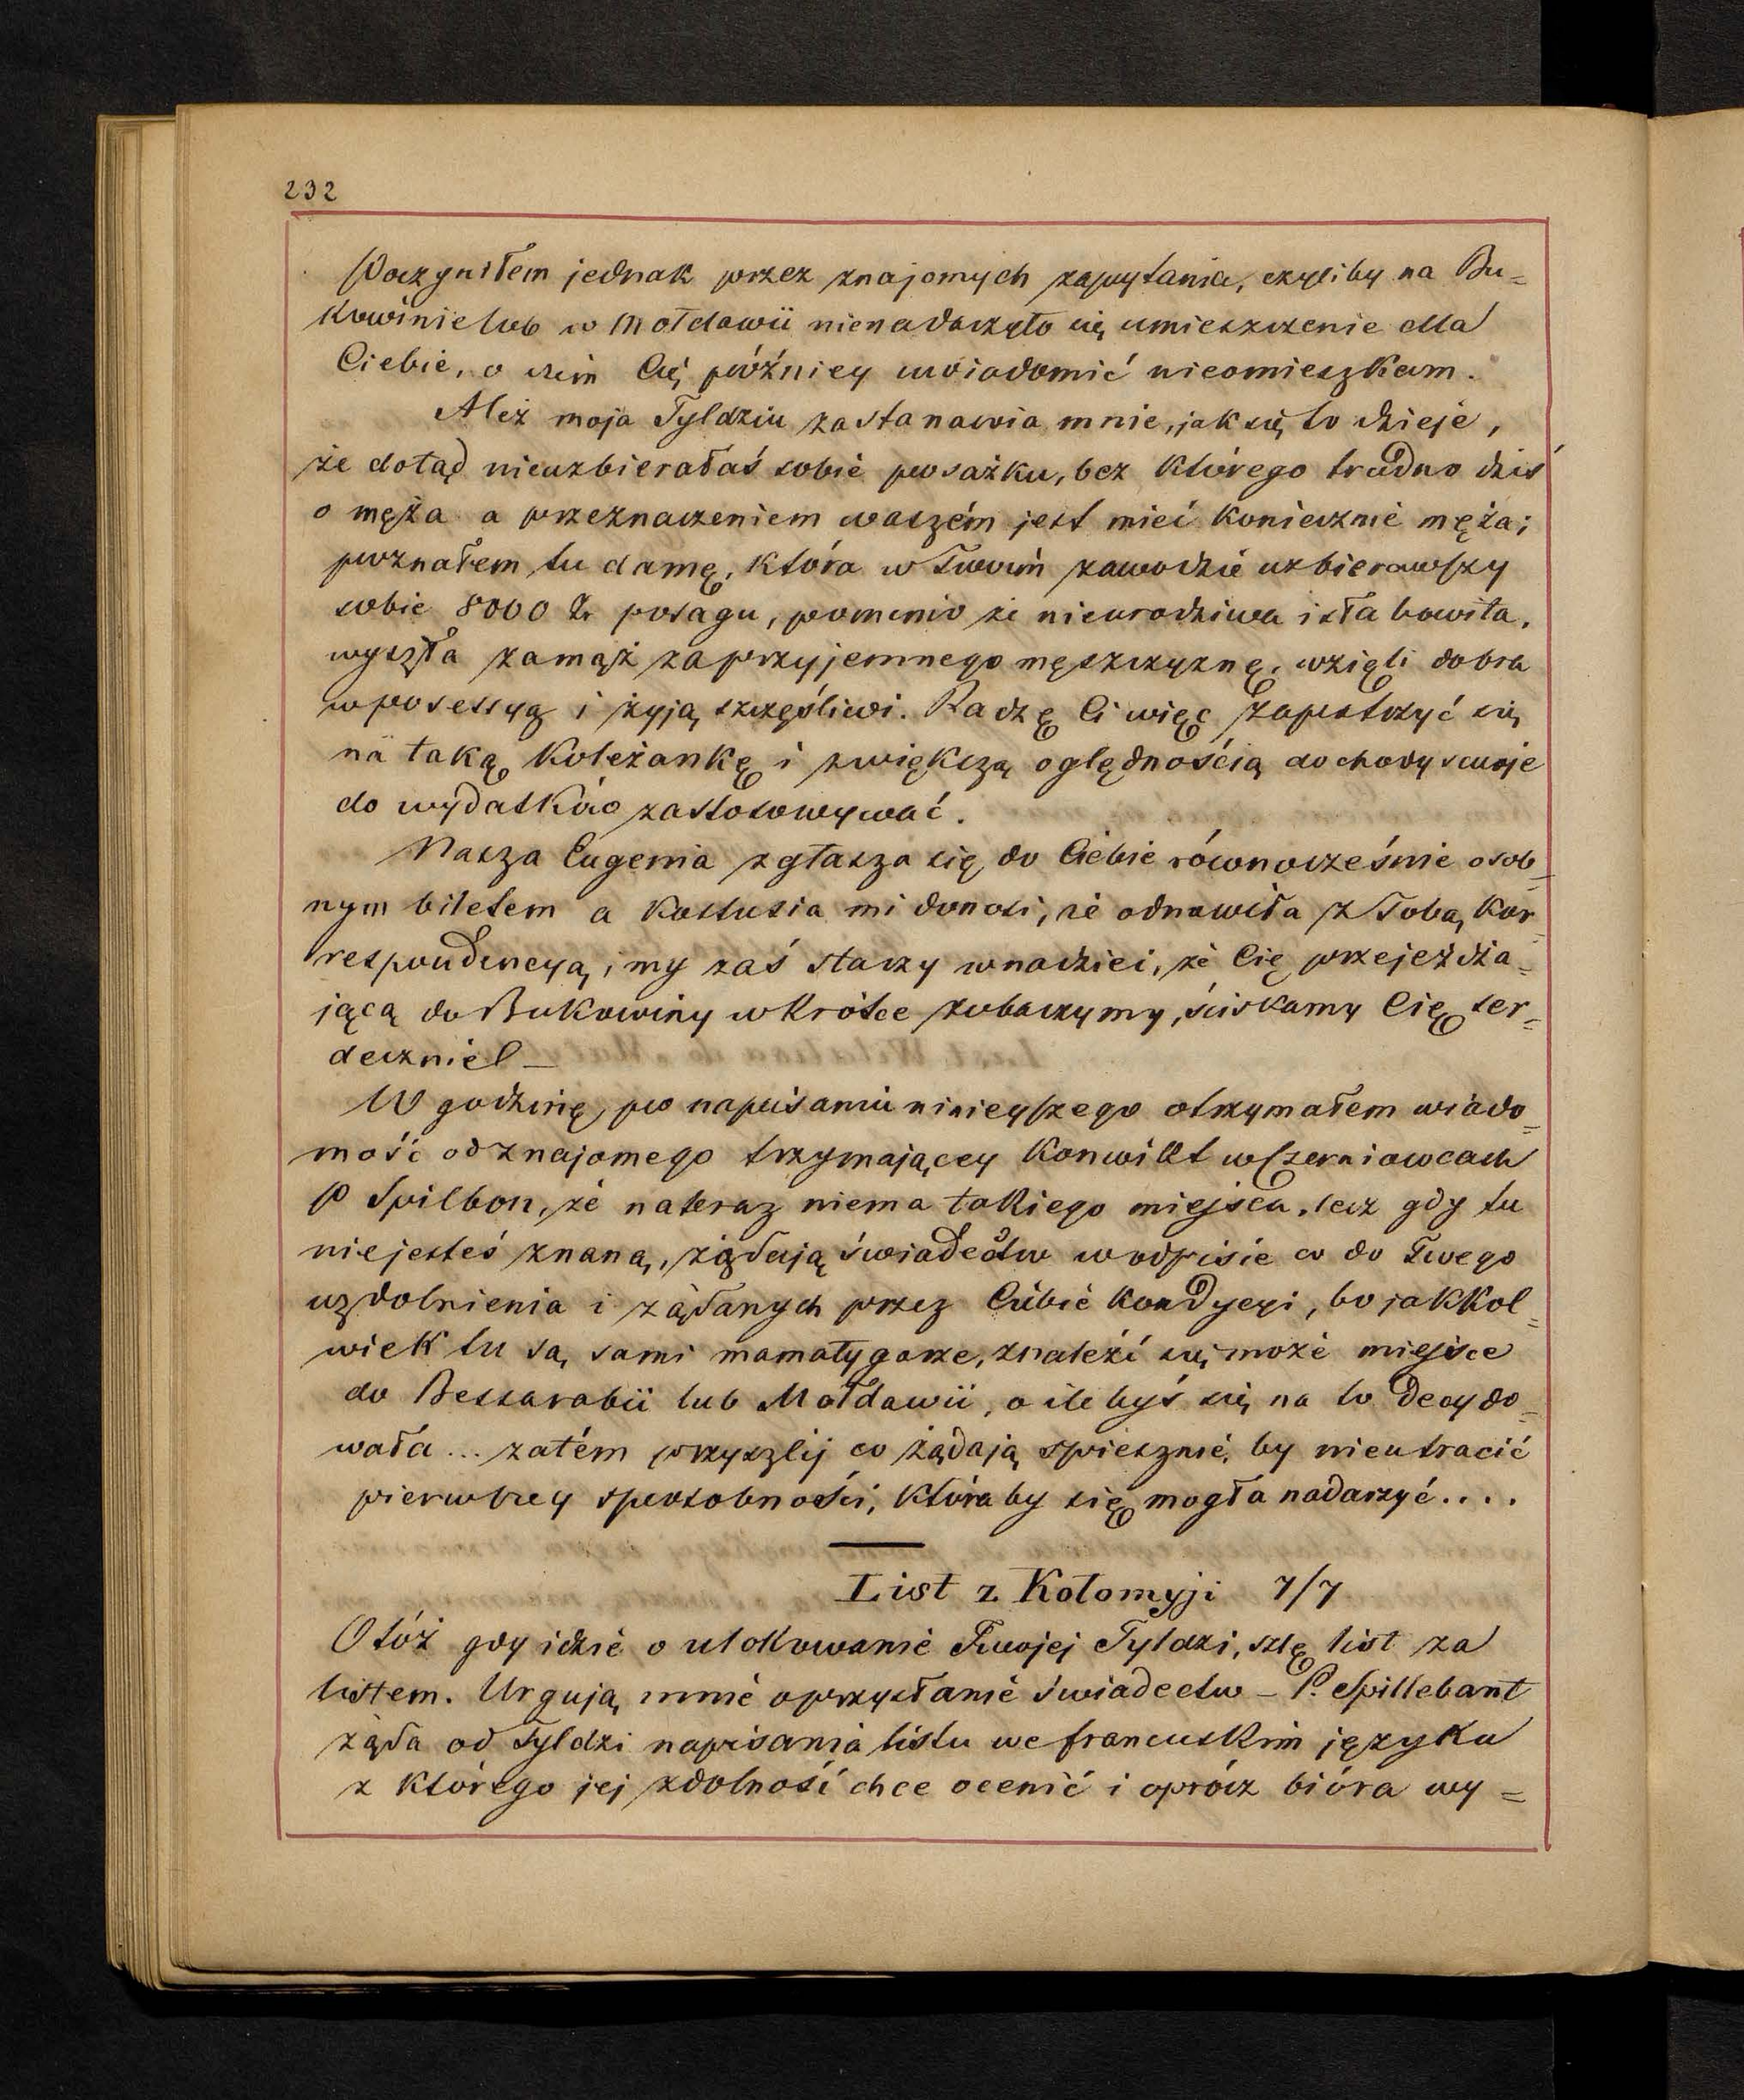 232
Poczyniłem jednak przez znajomych zapytania, czyliby na Bu=
kowinie lub w Mołdawii nienadarzyło się umieszczenie dla
Ciebie, o czém Cię późniey uwiadomić nieomieszkam.
Ależ moja Tyldziu zastanawia mnie, jak się to dzieje,
że dotąd nieuzbierałaś sobie posażku, bez którego trudno dziś
o męża a przeznaczeniem waszém jest mieć koniecznie męża;
poznałem tu damę, która w Twoim zawodzie uzbierawszy
sobie 8000 Zr posagu, pomimo że nieurodziwa i słabowita,
wyszła zamąż za przyjemnego męszczyznę, wzięli dobra
w posessyą i żyją szczęśliwi. Radzę Ci więc zapatrzyć się
na taką koleżankę i z większą oględnością dochody swoje
do wydatków zastosowywać.
Nasza Eugenia zgłasza się do Ciebie równocześnie osob=
nym biletem a Kostusia mi donosi, że odnowiła z Tobą kor=
respondencyą, i my zaś starzy w nadziei, że Cię przejeżdża=
jącą do Bukowiny wkrótce zobaczymy, ściskamy Cię ser=
decznie! —
W godzinę po napisaniu niniejszego otrzymałem wiado=
mość od znajomego trzymającey konwikt w Czerniowcach
P Spilbon, że nateraz niema takiego miejsca, lecz gdy tu
niejesteś znaną, żądają świadectw w odpisie co do Twego
uzdolnienia i żądanych przez Ciebie kondycyi, bo jakkol=
wiek tu są sami mamałygarze, znaleźć się może miejsce
do Bessarabii lub Mołdawii, o ile byś się na to decydo=
wała... zatém przyszlij co żądają spiesznie, by nieutracić
pierwszey sposobności, któraby się mogła nadarzyć....
List z Kołomyji 7/7
Otóż gdy idzie o ulokowanie Twojej Tyldzi, szlę list za
listem. Urgują mnie o przysłanie świadectw – P. Spillebant
żąda od Tyldzi napisania listu we francuskim języku
z którego jej zdolność chce ocenić i oprócz bióra wy=